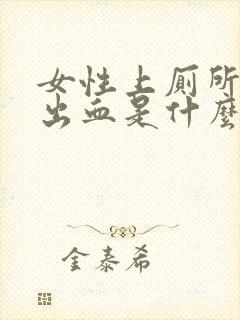 女性上厕所
出血是什麼
金泰希